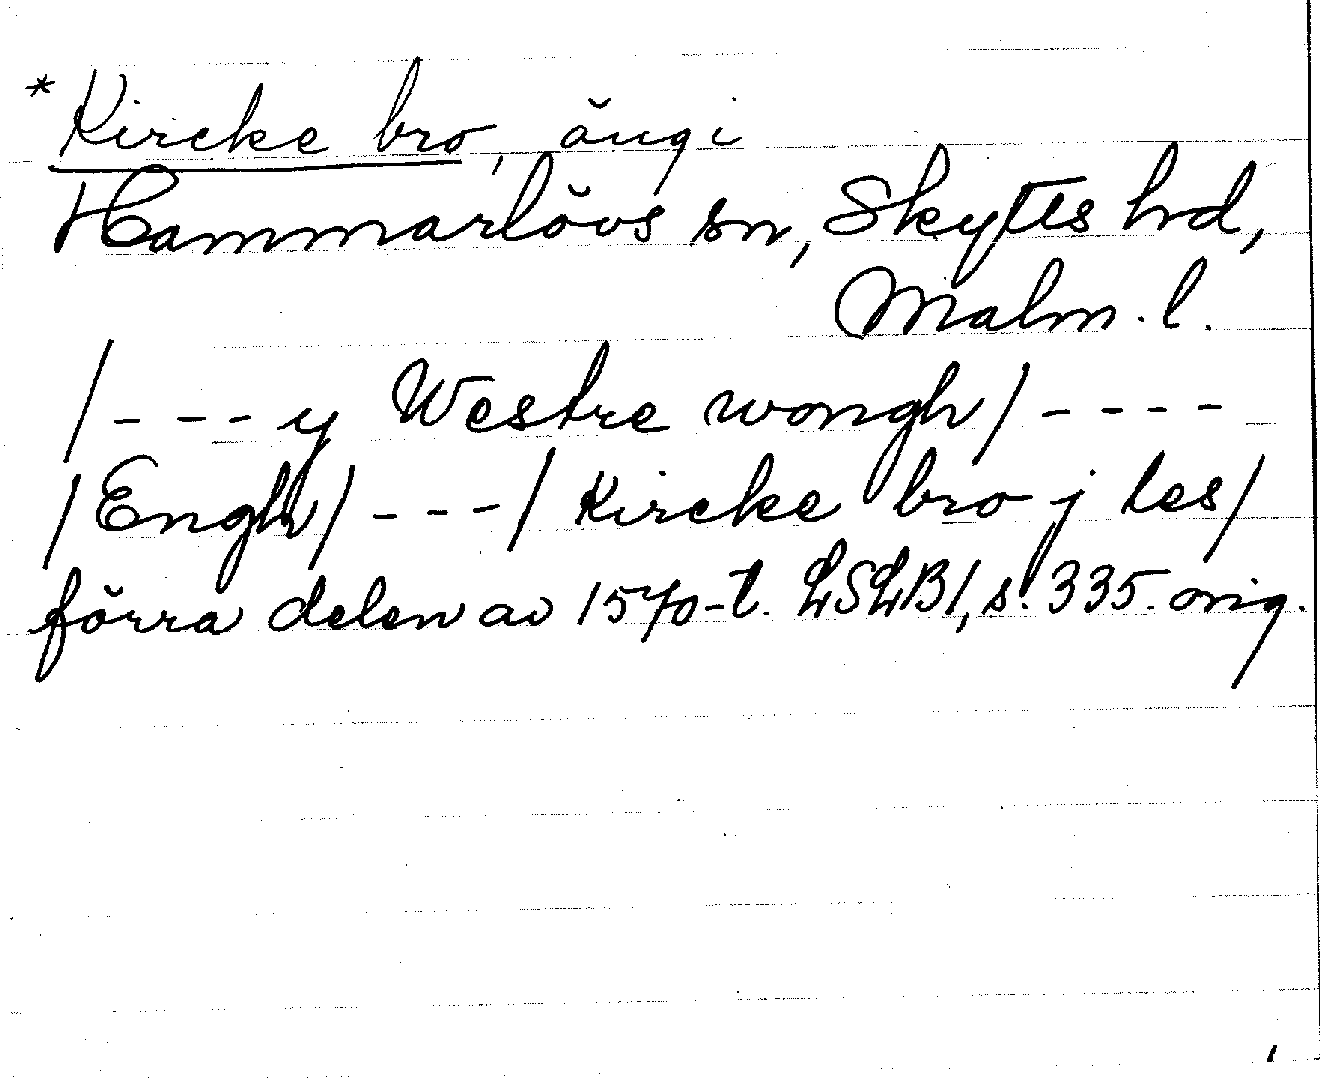 *Kircke bro, äng i
Hammarlövs sn, Skytts hd,
Malm. l.
/---y Westre wongh/----
/Engh/---/Kircke bro j les/
förra delen av 1570-t. LSLB1, s. 335. orig.